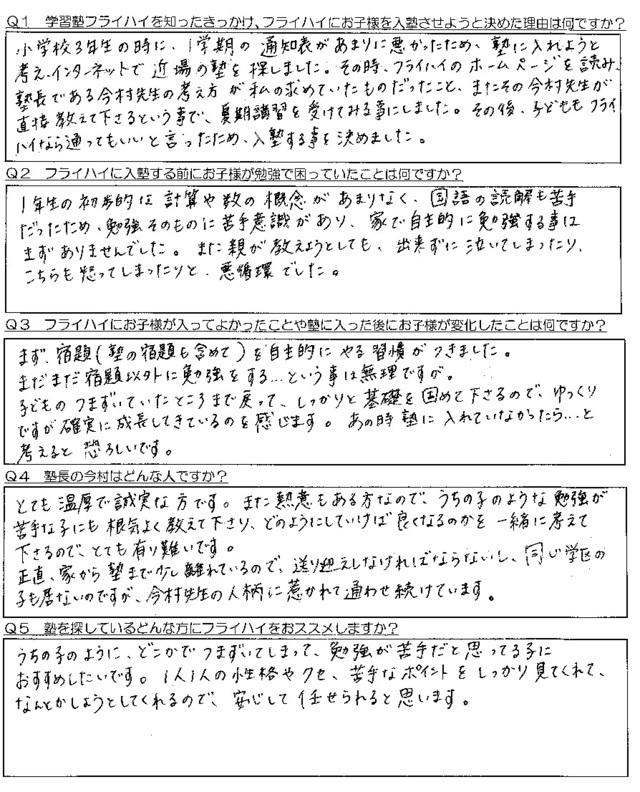 Q1　学習塾フライハイを知ったきっかけ、フライハイにお子様を入塾させようと決めた理由は何ですか？
小学校3年生の時に、1学期の通知表があまりに悪かったため、塾に入れようと
考え、インターネットで近場の塾を探しました。その時、フライハイのホームページを読み、
塾長である今村先生の考え方が私の求めていたものだったこと、またその今村先生が
直接教えて下さるという事で、夏期講習を受けてみる事にしました。その後、子どももフライ
ハイなら通ってもいいと言ったため、入塾する事を決めました。
Q2　フライハイに入塾する前にお子様が勉強で困っていたことは何ですか？
1年生の初歩的な計算や数の概念があまりなく、国語の読解も苦手
だったため、勉強そのものに苦手意識があり、家で自主的に勉強する事は
まずありませんでした。また親が教えようとしても、出来ずに泣いてしまったり、
こちらも怒ってしまったりと、悪循環でした。
Q3　フライハイにお子様が入ってよかったことや塾に入った後にお子様が変化したことは何ですか？
まず、宿題(塾の宿題も含めて)を自主的にやる習慣がつきました。
まだまだ宿題以外に勉強をする…という事は無理ですが。
子どものつまずいていたところまで戻って、しっかりと基礎を固めて下さるので、ゆっくり
ですが確実に成長してきているのを感じます。あの時塾に入れていなかったら…と
考えると恐ろしいです。
Q4　塾長の今村はどんな人ですか？
とても温厚で誠実な方です。また熱意もある方なので、うちの子のような勉強が
苦手な子にも根気よく教えて下さり、どのようにしていけば良くなるのかを一緒に考えて
下さるので、とても有り難いです。
正直、家から塾まで少し離れているので、送り迎えしなければならないし、同じ学区の
子も居ないのですが、今村先生の人柄に惹かれて通わせ続けています。
Q5　塾を探しているどんな方にフライハイをおススメしますか？
うちの子のように、どこかでつまずいてしまって、勉強が苦手だと思ってる子に
おすすめしたいです。1人1人の性格やクセ、苦手なポイントをしっかり見てくれて、
なんとかしようとしてくれるので、安心して任せられると思います。